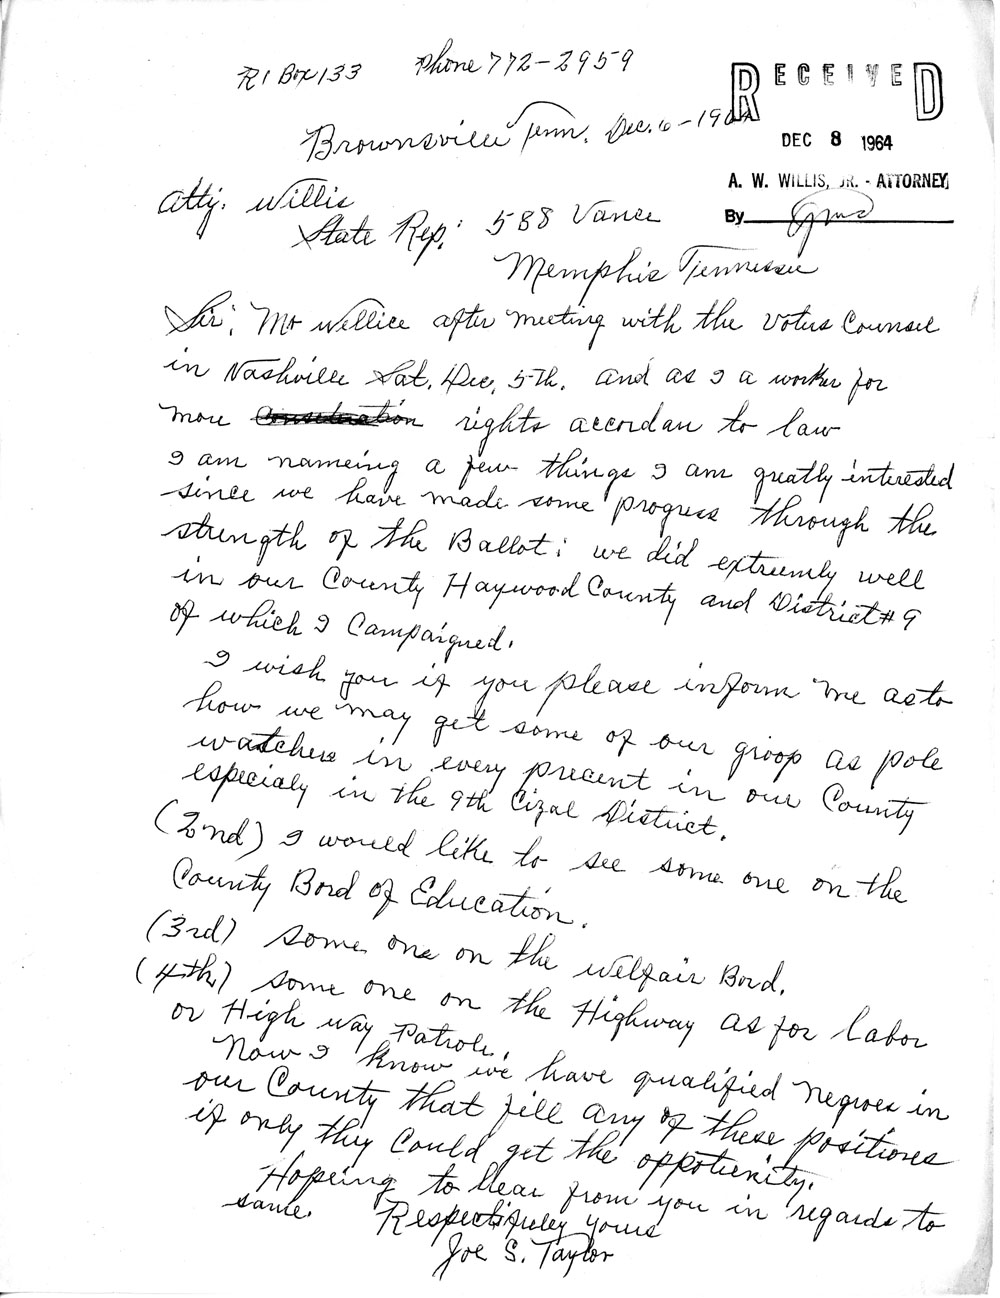 R1 Box 133 Phone 772-2959
RECEIVED
DEC 8 1964
A. W. WILLIS, JR. - ATTORNEY
By
Brownsville Tenn. Dec. 6-1964
Atty. Willis
State Rep; 588 Vance
Memphis Tennessee
Sir; Mr Willice after meeting with the Voters Counsel
in Nashville Sat. Dec, 5th. and as I a worker for
more rights accordan to law
I am nameing a few things I am greatly interested
since we have made some progress through the
strength of the Ballot; we did extreemly well
in our County Haywood County and District #9
of which I Campaigned.
I wish you if you please inform me as to
how we may get some of our groop as pole
watchers in every precent in our County
especialy in the 9th Cizal District.
(2nd) I would like to see some one on the
County Bord of Education.
(3rd) some one on the welfair Bord.
(4th) some one on the Highway as for labor
or High way Patrole.
Now I know we have qualified Negroes in
our County that fill any of these positiones
if only they Could get the oppotunity.
Hopeing to hear from you in regards to
same. Respectifuley yours
Joe S. Taylor